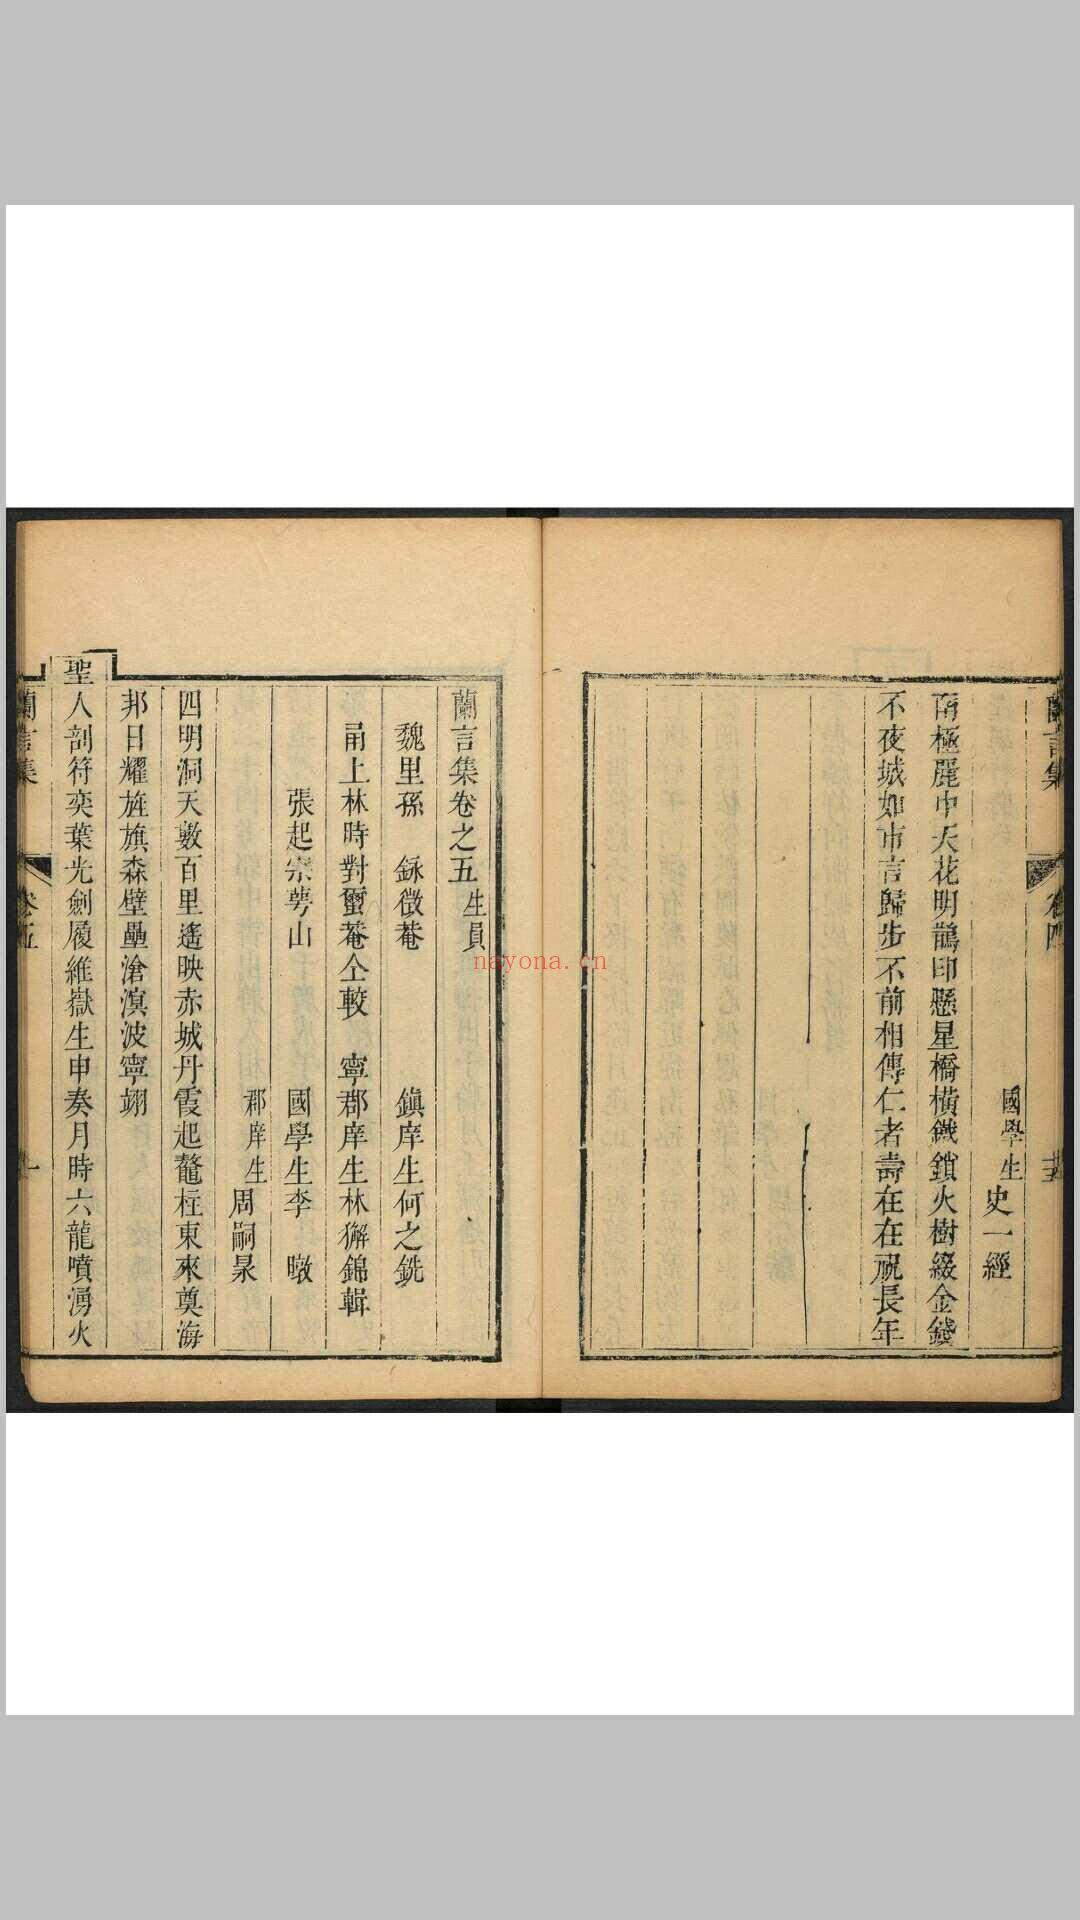 蘭言集
卷四
國學生史一經
南極麗中天花明鵲印懸星橋橫鐵鎖火樹綴金錢
不夜城如市言歸步不前相傳仁者壽在在祝長年
蘭言集卷之五 生員
魏里孫 銾徵菴 鎮庠生何之銑
甬上林時對璽菴仝較 寧郡庠生林獬錦輯
張起宗萼山 國學生李 暾
郡庠生周嗣杲
四明洞天數百里遙映赤城丹霞起鼇柱東來奠海
邦日耀旌旗森壁壘滄溟波寧翊
聖人剖符奕葉光劍履維嶽生申奏月時六龍噴湧火
蘭言集
卷五
一
nayona.cn